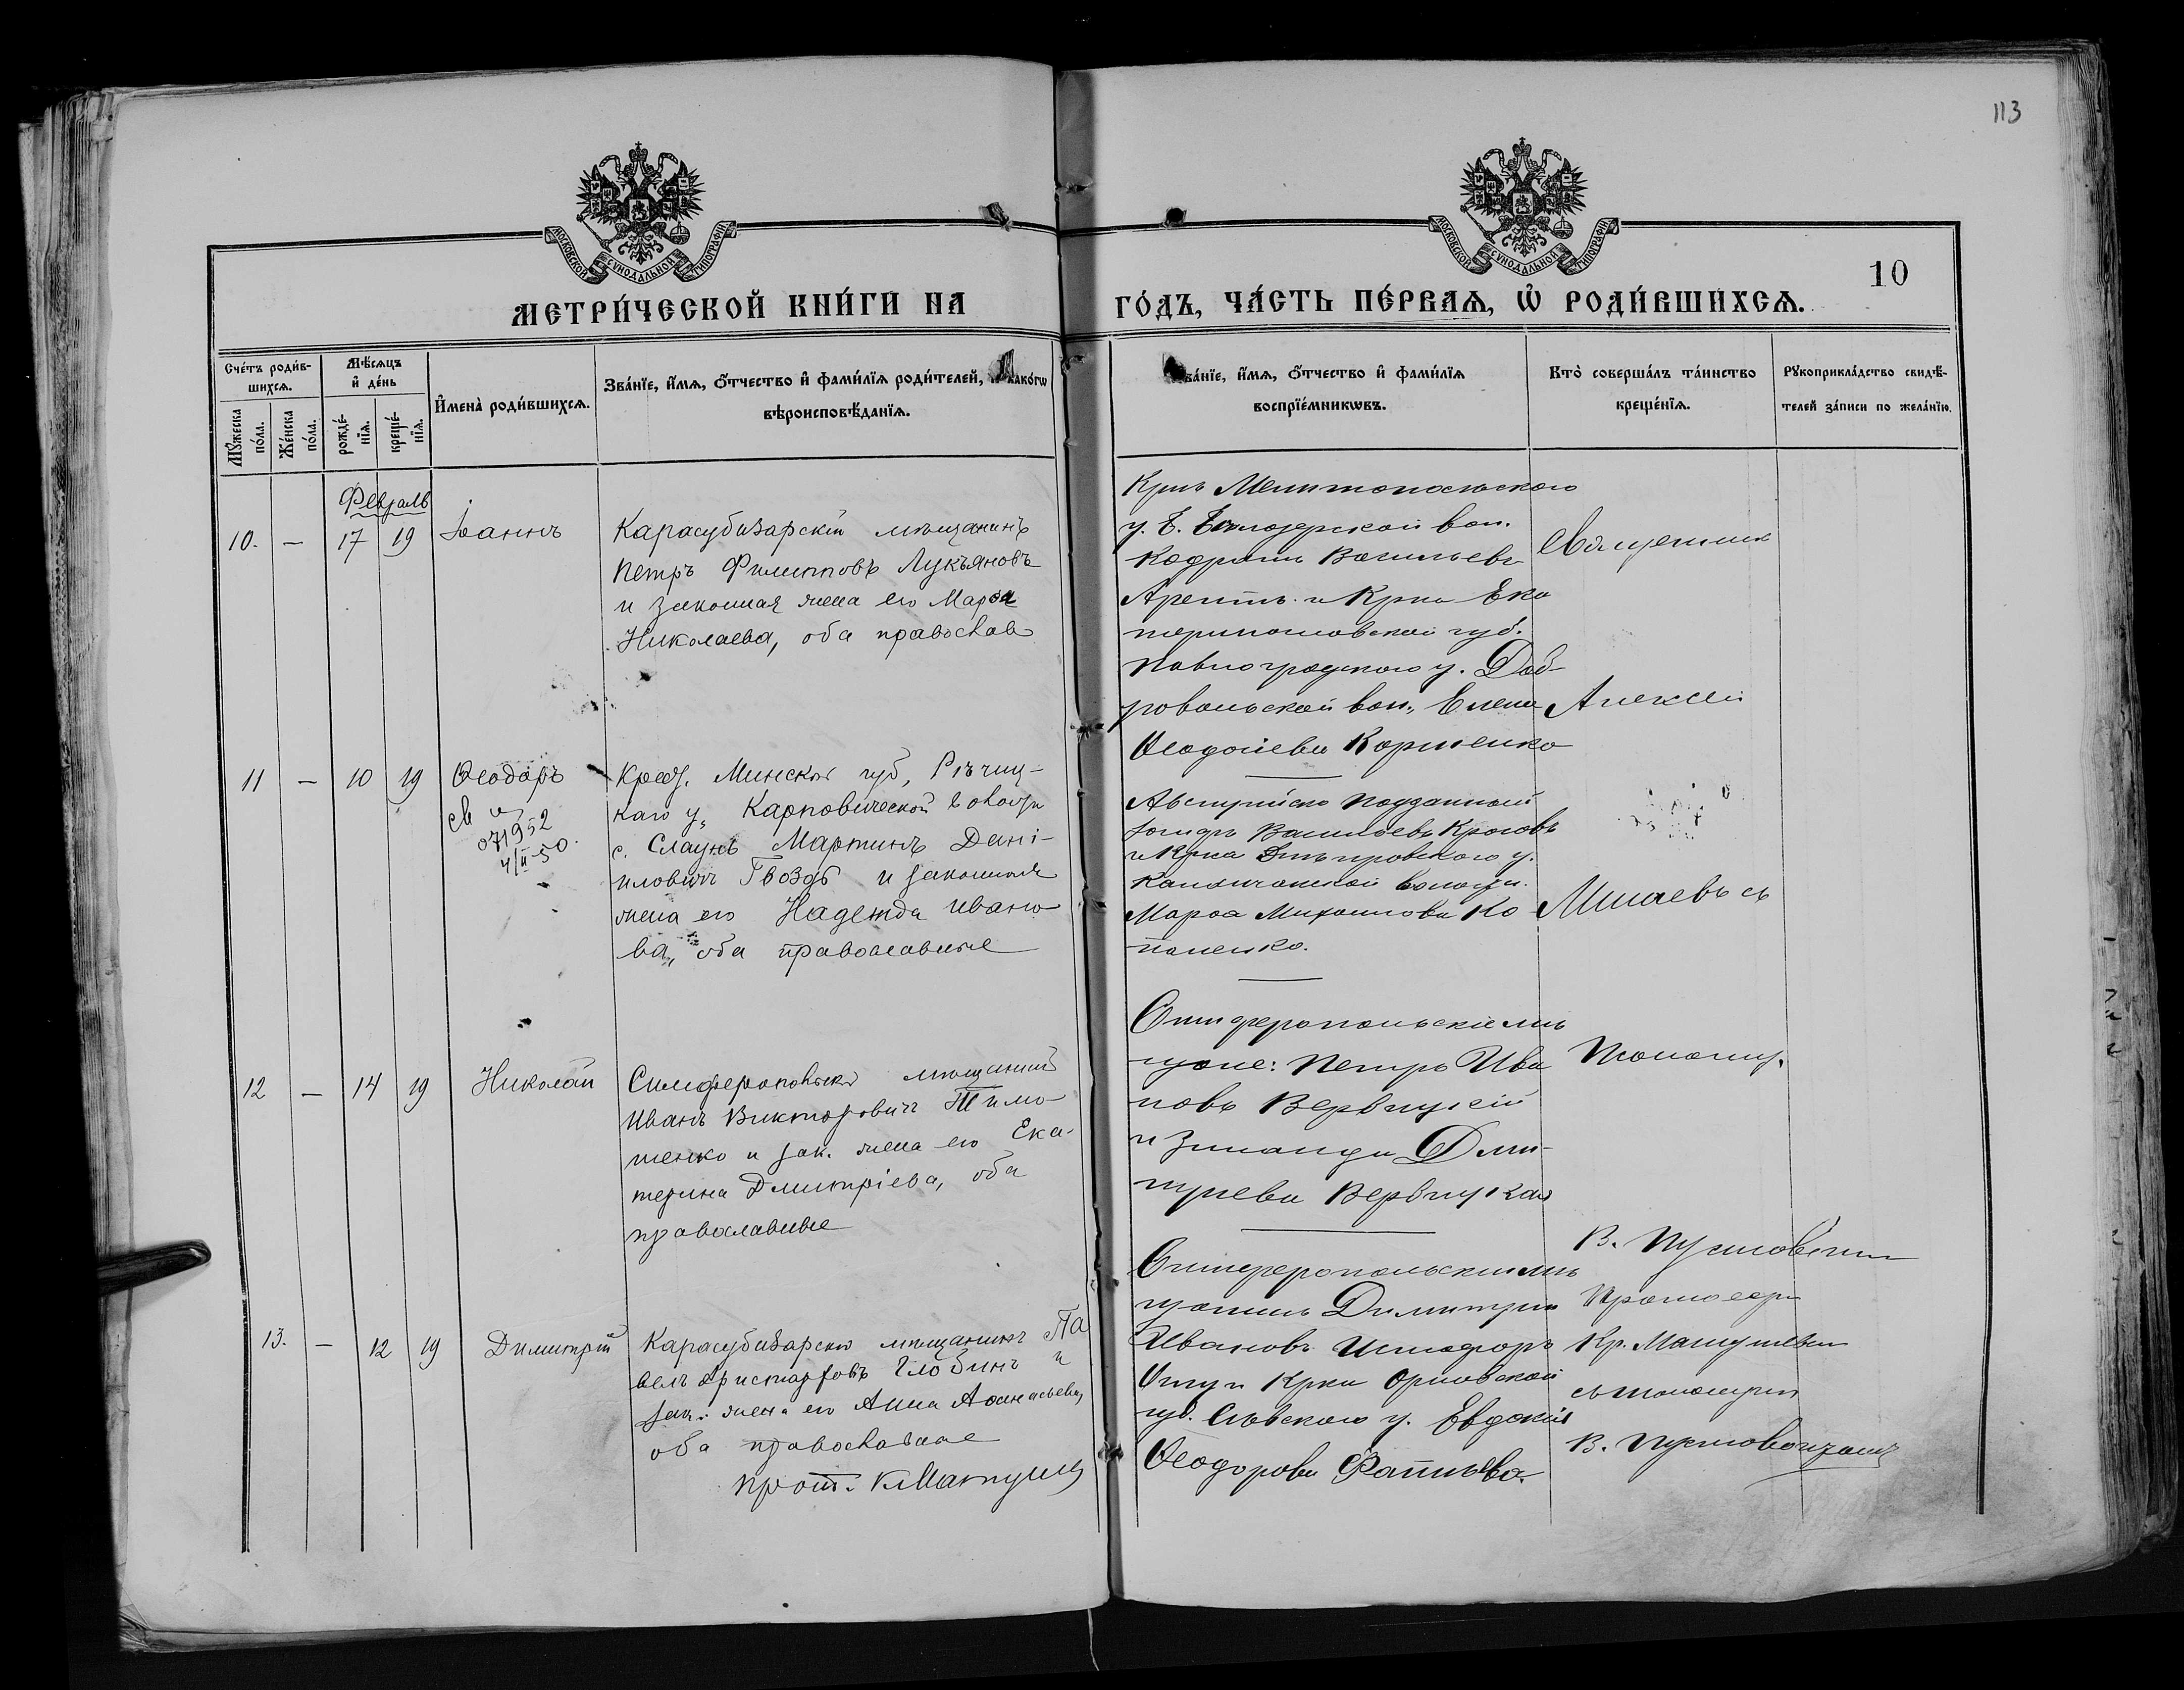 113
МОСКОВСКОЙ СѴНОДАЛЬНОЙ ТИПОГРАФІИ
МОСКОВСКОЙ СѴНОДАЛЬНОЙ ТИПОГРАФІИ
10
МЕТРИ́ЧЕСКОЙ КНИ́ГИ НА
ГО́ДЪ, ЧА́СТЬ ПЕ́РВАѦ, Ѡ҆ РОДИ́ВШИХСѦ.
Сче́тъ роди́в-
шихсѧ.
Мѣ́сѧцъ
и҆ де́нь
Мꙋ́жеска по́ла.
Же́нска по́ла.
рожде́-
нїѧ.
креще́-
нїѧ.
И҆мена̀ роди́вшихсѧ.
Зва́нїе, и҆́мѧ, ѻ҆́тчество и҆ фами́лїѧ роди́телей, и҆ како́гѡ
вѣроисповѣ́данїѧ.
зва́нїе, и҆́мѧ, ѻ҆́тчество и҆ фами́лїѧ
воспрїе́мникѡвъ.
Кто̀ соверша́лъ та́инство
креще́нїѧ.
Рꙋкоприкла́дство свидѣ́-
телей за́писи по жела́нїю.
Февраль
10. — 17 19 Іоаннъ
Карасубазарскій мѣщанинъ
Петръ Филипповъ Лукьяновъ
и законная жена его Марѳа
Николаева, оба православ
Крнъ Мелитопольского
у. Б. Бѣлозерской вол.
Кодратъ Васильевъ
и Крка Ека
териносовской губ.
Павлоградского у. Доб-
ровольской вол., Елена
Ѳеодосіева Корниенко
Священникъ
Алексѣй
Минаевъ съ
Псаломщ.
11 — 10 19 Ѳеодоръ
св
071952
4/II-50.
Крест. Минской губ, Рѣчиц-
каго у., Карповической волости
с. Слаунъ Мартинъ Дані-
иловичъ Гвоздь и законная
жена его Надежда Ивано-
ва, оба православные
Австрійско подданный
Васильевъ
и Крка Днѣпровского у.
волости.
Марѳа Михаилова Ко
паленко.
12 — 14 19 Николай
Симферопольск мѣщанинъ
Иванъ Викторовичъ Тимо-
шенко и зак. жена его Ека-
терина Дмитріева, оба
православные
Симферопольскіе мѣ
щане: Петръ Ива
новъ Вербицкій
и Зинаида Дми-
тріева Вербицкая
В.
13. — 12 19 Димитрій
Карасубазарскій мѣщанинъ Па
велъ Аристарховъ Глобинъ и
зак. жена его Анна Аѳанасьева,
оба православные
прот. К. Матушев
Симферопольскій мѣ
щанинъ Димитрій
Ивановъ
и Крка Орловской
губ. Сѣвского у. Евдокія
Ѳеодорова
Протоіер
Кр. Матушевъ
съ псаломщик
В.